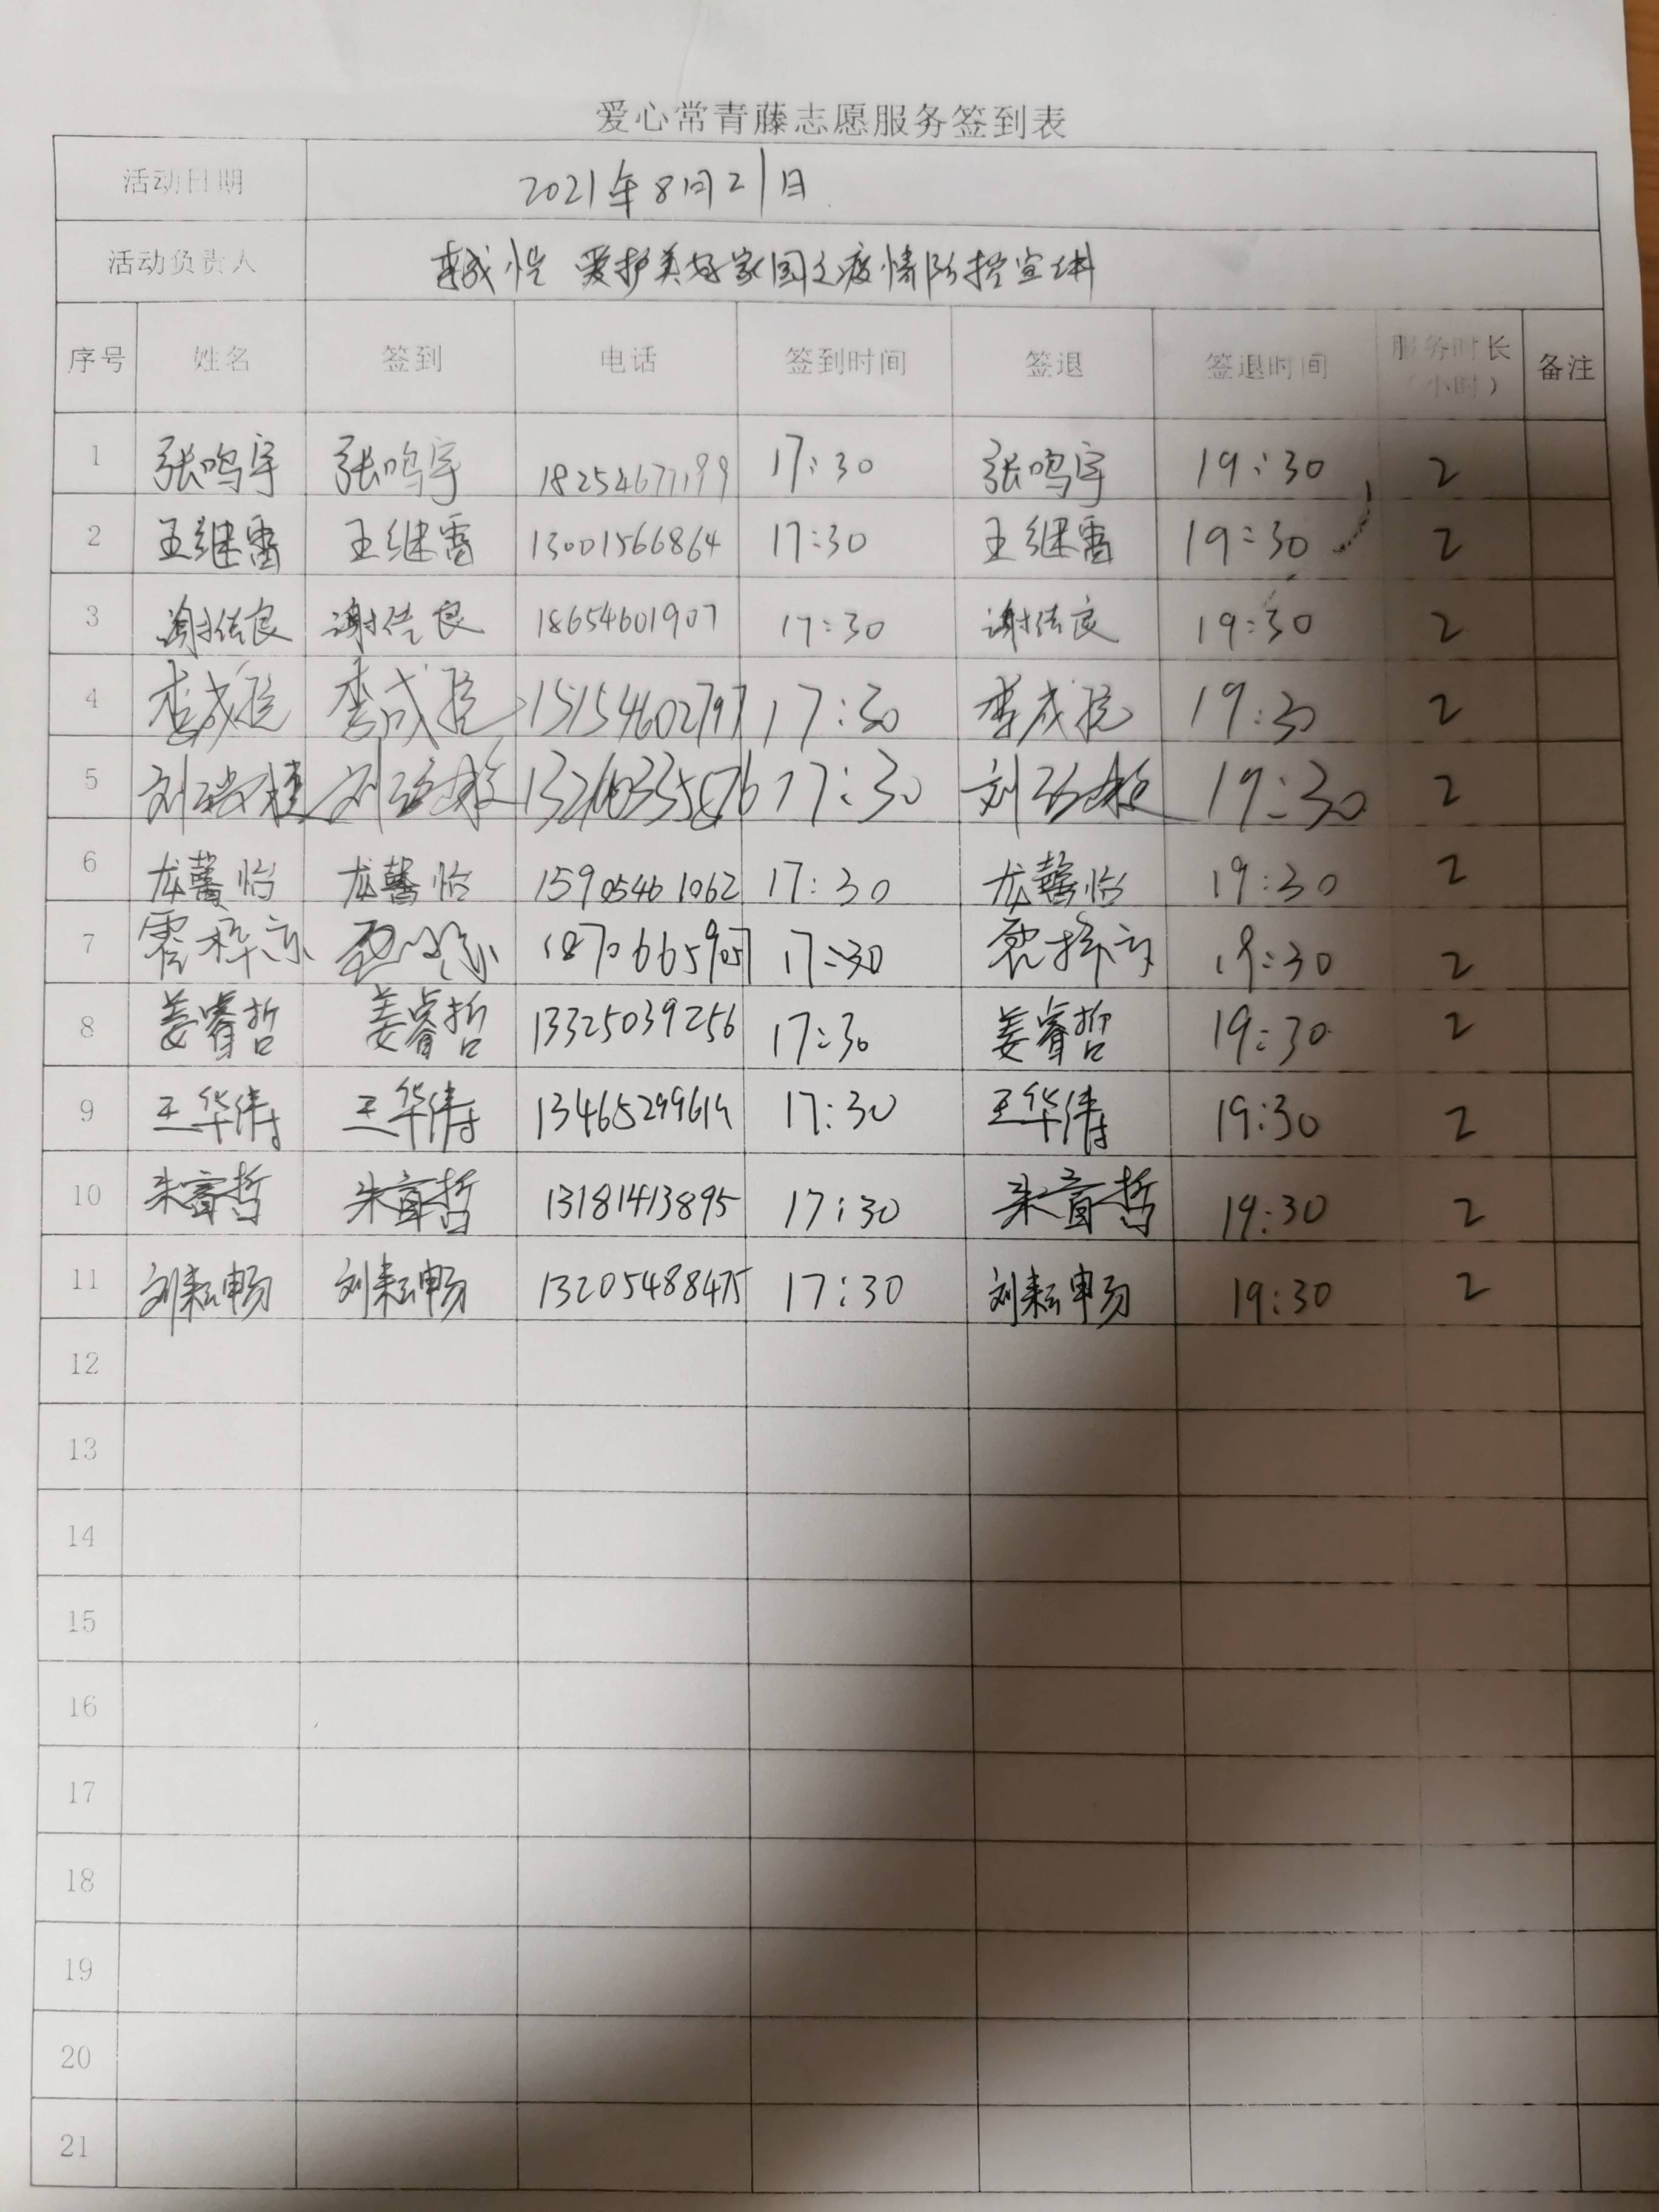 爱心常青藤志愿服务签到表
活动日期 2021年8月21日
活动负责人 爱护美好家园之疫情防控宣传
序号 姓名 签到 电话 签到时间 签退 签退时间 服务时长（小时） 备注
1 张鸣宇 张鸣宇 18254677199 17:30 张鸣宇 19:30 2
2 王继雷 王继雷 13001566864 17:30 王继雷 19:30 2
3 谢佳良 谢佳良 18654601907 17:30 谢佳良 19:30 2
4 李成悦 李成悦 15154602797 17:30 李成悦 19:30 2
5 17:30 19:30 2
6 龙馨怡 龙馨怡 15905461062 17:30 龙馨怡 19:30 2
7 17:30 19:30 2
8 姜睿哲 姜睿哲 13325039256 17:30 姜睿哲 19:30 2
9 王华倩 王华倩 13465299619 17:30 王华倩 19:30 2
10 朱睿哲 朱睿哲 13181413895 17:30 朱睿哲 19:30 2
11 刘耘畅 刘耘畅 13205488475 17:30 刘耘畅 19:30 2
12
13
14
15
16
17
18
19
20
21